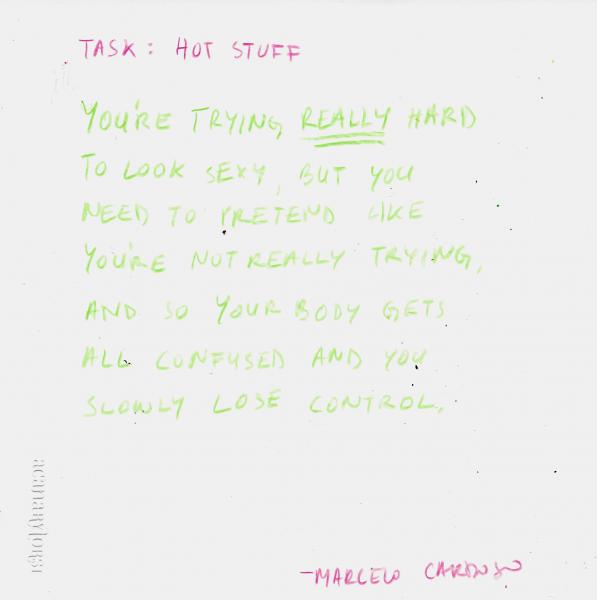 TASK: HOT STUFF
YOU'RE TRYING REALLY HARD
TO LOOK SEXY, BUT YOU
NEED TO PRETEND LIKE
YOU'RE NOT REALLY TRYING,
AND SO YOUR BODY GETS
ALL CONFUSED AND YOU
SLOWLY LOSE CONTROL.
acanary|org
-MARCELO CARDOSO